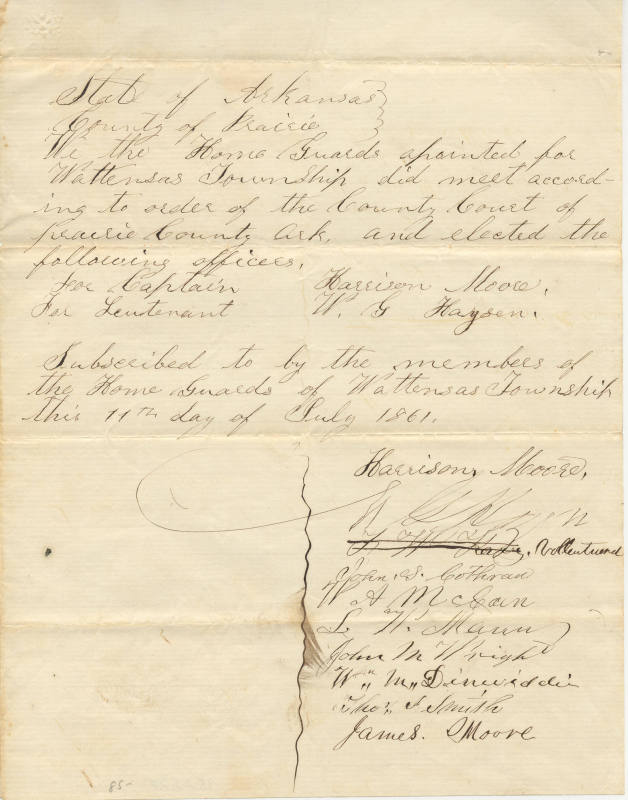 State of Arkansas
County of Prairie
We the Home Guards apointed for
Wattensas Township did meet accord-
ing to order of the County Court of
prairie County Ark, and elected the
following officers.
For Captain Harrison Moore.
For Leutenant W. G Haysen.
Subscribed to by the members of
the Home Guards of Wattensas Township
this 11th day of July 1861.
Harrison, Moore,
W G
W
John. S. Cothran
W A McCain
L. W. Mann
John M Wright
W,, M,, Dinwiddie
Thos, J Smith
James. Moore
85-